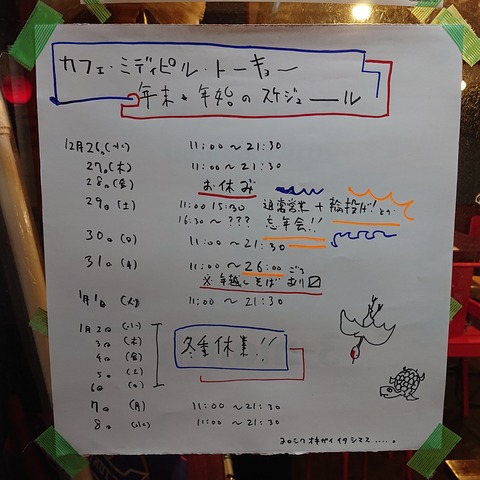 カフェ・ミディピル・トーキョー
年末・年始のスケジュール
12月26日(水) 11:00〜21:30
27日(木) 11:00〜21:30
28日(金) お休み
29日(土) 11:00 15:30 通常営業 + 輪投げ!!とか
16:30〜??? 忘年会!!
30日(日) 11:00〜21:30
31日(月) 11:00〜26:00ごろ
※年越しそばあり〼
1月1日(火) 11:00〜21:30
1月2日(水)
3日(木)
4日(金)
5日(土)
6日(日)
冬季休業!!
7日(月) 11:00〜21:30
8日(火) 11:00〜21:30
ヨロシクオネガイイタシマス....。